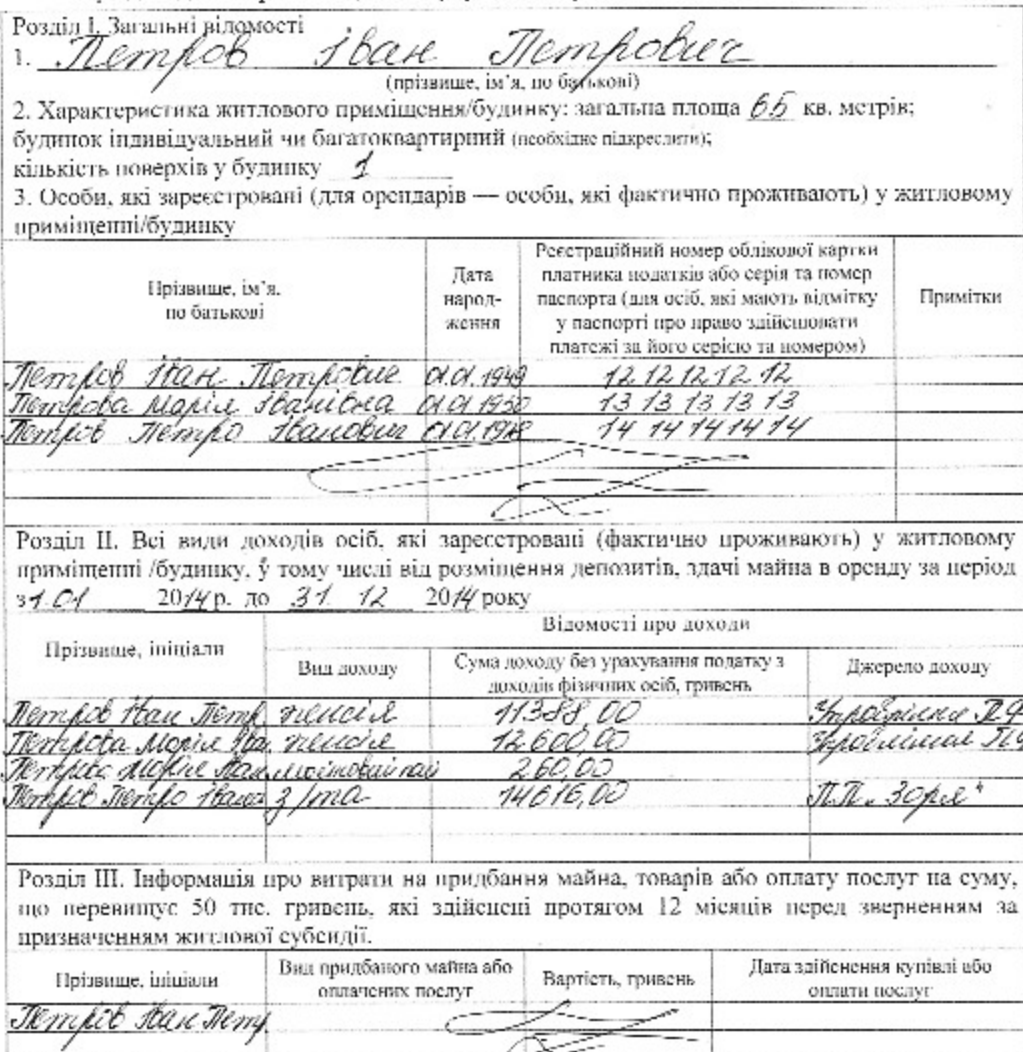 Розділ I. Загальні відомості
1. Петров Іван Петрович
(прізвище, ім'я, по батькові)
2. Характеристика житлового приміщення/будинку: загальна площа 65 кв. метрів;
будинок індивідуальний чи багатоквартирний (необхідне підкреслити);
кількість поверхів у будинку 1
3. Особи, які зареєстровані (для орендарів — особи, які фактично проживають) у житловому
приміщенні/будинку
Прізвище, ім'я, по батькові
Дата народ-ження
Реєстраційний номер облікової картки
платника податків або серія та номер
паспорта (для осіб, які мають відмітку
у паспорті про право здійснювати
платежі за його серією та номером)
Примітки
Петров Іван Петрович 01.01.1949 12 12 12 12 12
Петрова Марія Іванівна 01.01.1950 13 13 13 13 13
Петров Петро Іванович 01.01.1978 14 14 14 14 14
Розділ II. Всі види доходів осіб, які зареєстровані (фактично проживають) у житловому
приміщенні /будинку, у тому числі від розміщення депозитів, здачі майна в оренду за період
з 1.01 2014 р. до 31. 12 2014 року
Прізвище, ініціали
Відомості про доходи
Вид доходу
Сума доходу без урахування податку з
доходів фізичних осіб, гривень
Джерело доходу
Петров Іван Петр. пенсія 11388,00
Петрова Марія Іва. пенсія 12600,00
Петрова Марія Іван. 260,00
Петров Петро Івана з/пта 14616,00 П.П. „Зоря"
Розділ III. Інформація про витрати на придбання майна, товарів або оплату послуг на суму,
що перевищує 50 тис. гривень, які здійснені протягом 12 місяців перед зверненням за
призначенням житлової субсидії.
Прізвище, ініціали
Вид придбаного майна або
оплачених послуг
Вартість, гривень
Дата здійснення купівлі або
оплати послуг
Петров Іван Петр.